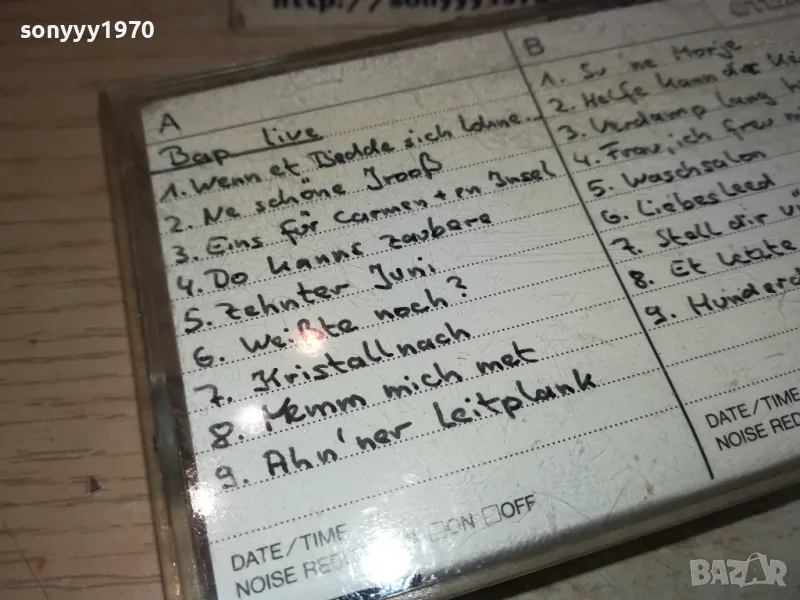 sonyyy1970
http://sonyyy1970
A
Bap live
1. Wenn et Bedde sich lohne...
2. Ne schöne Jrooß
3. Eins für Carmen + en Insel
4. Do kanns zaubere
5. Zehnter Juni
6. Weißte noch?
7. Kristallnach
8. Nemm mich met
9. Ahn'ner Leitplank
DATE/TIME
NOISE RED
ON OFF
B
1. Su 'ne Morje
2. Helfe kann dir
3. Verdamp lang
4. Frau, ich freu
5. Waschsalon
6. Liebesleed
7. Stell dir
8. Et letzte
9. Hunderd
DATE/TIME
NOISE RED
BAZAR